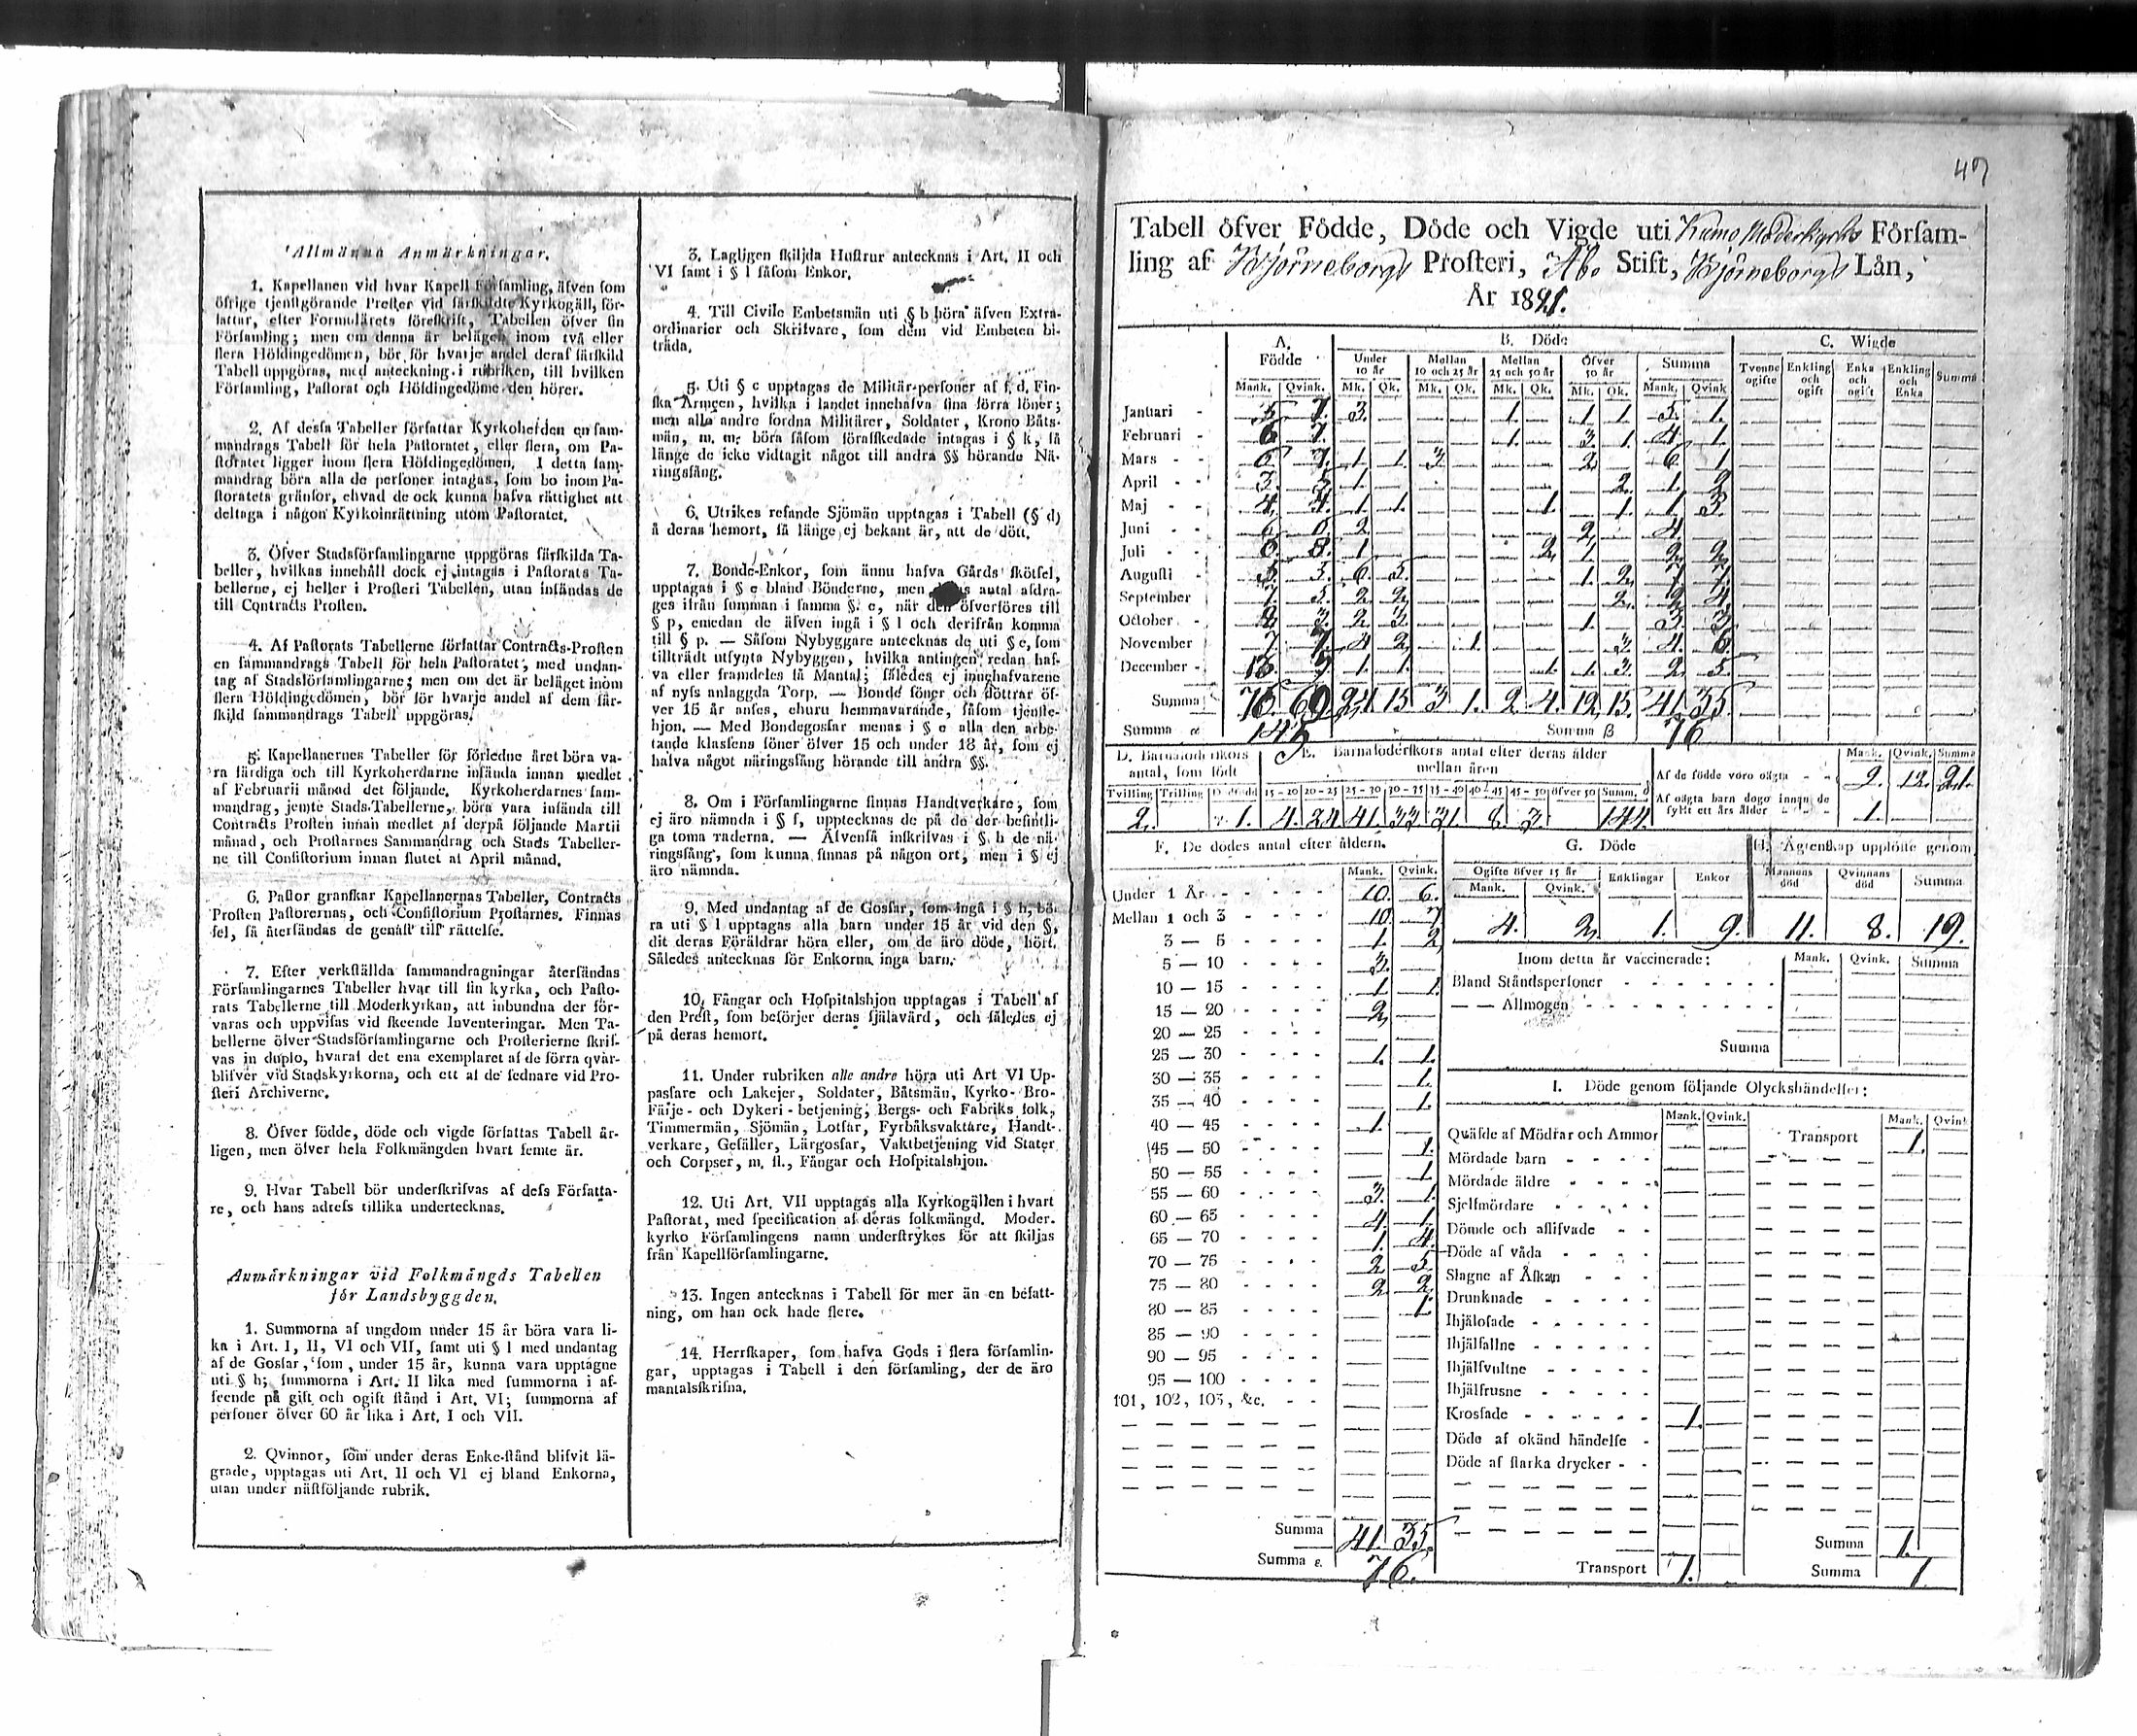 Allmänna Anmärkningar.
1. Kapellanen vid hvar Kapell Församling, äfven som
öfrige tjenstgörande Prester vid särskildte Kyrkogäll, för-
fattar, efter Formulärets föreskrift, Tabellen öfver sin
Församling; men om denna är belägen inom två eller
flera Höfdingedömen, bör för hvarje andel deraf särskild
Tabell uppgöras, med anteckning i rubriken, till hvilken
Församling, Pastorat och Höfdingedöme den hörer.
2. Af dessa Tabeller författar Kyrkoherden en sam-
mandrags Tabell för hela Pastoratet, eller flera, om Pa-
storatet ligger inom flera Höfdingedömen. I detta sam-
mandrag böra alla de personer intagas, som bo inom Pa-
storatets gränsor, ehvad de ock kunna hafva rättighet att
deltaga i någon Kyrkoinrättning utom Pastoratet.
3. Öfver Stadsförsamlingarne uppgöras särskilda Ta-
beller, hvilkas innehåll dock ej intagas i Pastorats Ta-
bellerne, ej heller i Prosteri Tabellen, utan insändas de
till Contracts Prosten.
4. Af Pastorats Tabellerne författar Contracts-Prosten
en sammandrags Tabell för hela Pastoratet, med undan-
tag af Stadsförsamlingarne; men om det är beläget inom
flera Höfdingedömen, bör för hvarje andel af dem sär-
skild sammandrags Tabell uppgöras.
5. Kapellanernes Tabeller för förledne året böra va-
ra färdiga och till Kyrkoherdarne insända innan medlet
af Februarii månad det följande. Kyrkoherdarnes sam-
mandrag, jemte Stads-Tabellerne, böra vara insända till
Contracts Prosten innan medlet af derpå följande Martii
månad, och Prostarnes Sammandrag och Stads Tabeller-
ne till Consistorium innan slutet af April månad.
6. Pastor granskar Kapellanernas Tabeller, Contracts
Prosten Pastorernas, och Consistorium Prostarnes. Finnas
fel, så återsändas de genast till rättelse.
7. Efter verkställda sammandragningar återsändas
Församlingarnes Tabeller hvar till sin kyrka, och Pasto-
rats Tabellerne till Moderkyrkan, att inbundna der för-
varas och uppvisas vid skeende Inventeringar. Men Ta-
bellerne öfver Stadsförsamlingarne och Prosterierne skrif-
vas in duplo, hvaraf det ena exemplaret af de förra qvar-
blifver vid Stadskyrkorna, och ett af de sednare vid Pro-
steri Archiverne.
8. Öfver födde, döde och vigde författas Tabell år-
ligen, men öfver hela Folkmängden hvart femte år.
9. Hvar Tabell bör underskrifvas af dess Författa-
re, och hans adress tillika undertecknas.
Anmärkningar vid Folkmängds Tabellen
för Landsbyggden.
1. Summorna af ungdom under 15 år böra vara li-
ka i Art. I, II, VI och VII, samt uti § l med undantag
af de Gossar, som, under 15 år, kunna vara upptagne
uti § h; summorna i Art. II lika med summorna i af-
seende på gift och ogift stånd i Art. VI; summorna af
personer öfver 60 år lika i Art. I och VII.
2. Qvinnor, som under deras Enke-stånd blifvit lä-
grade, upptagas uti Art. II och VI ej bland Enkorna,
utan under nästföljande rubrik.
3. Lagligen skiljda Hustrur antecknas i Art. II och
VI samt i § l såsom Enkor.
4. Till Civile Embetsmän uti § b höra äfven Extra-
ordinarier och Skrifvare, som dem vid Embeten bi-
träda.
5. Uti § c upptagas de Militär-personer af f. d. Fin-
ska Armeen, hvilka i landet innehafva sina förra löner;
men alla andre fordna Militärer, Soldater, Krono Båts-
män, m. m. böra såsom förafskedade intagas i § k, så
länge de icke vidtagit något till andra §§ hörande Nä-
ringsfång.
6. Utrikes resande Sjömän upptagas i Tabell (§ d)
å deras hemort, så länge ej bekant är, att de dött.
7. Bonde-Enkor, som ännu hafva Gårds skötsel,
upptagas i § e bland Bönderne, men antal afdra-
ges ifrån summan i samma §. e, när den öfverföres till
§ p, emedan de äfven ingå i § l och derifrån komma
till § p. — Såsom Nybyggare antecknas de uti § e, som
tillträdt utsynta Nybyggen, hvilka antingen redan haf-
va eller framdeles få Mantal; således ej innehafvarene
af nyss anlaggda Torp. — Bonde söner och döttrar öf-
ver 15 år anses, ehuru hemmavarande, såsom tjenste-
hjon. — Med Bondegossar menas i § e alla den arbe-
tande klassens söner öfver 15 och under 18 år, som ej
hafva något näringsfång hörande till andra §§.
8. Om i Församlingarne finnas Handtverkare, som
ej äro nämnda i § f, upptecknas de på de der befintli-
ga toma raderna. — Äfvenså inskrifvas i § h de nä-
ringsfång, som kunna finnas på någon ort, men i § ej
äro nämnda.
9. Med undantag af de Gossar, som ingå i § h, bö-
ra uti § l upptagas alla barn under 15 år vid den §,
dit deras Föräldrar höra eller, om de äro döde, hört.
Således antecknas för Enkorna inga barn.
10. Fångar och Hospitalshjon upptagas i Tabell af
den Prest, som besörjer deras själavård, och således ej
på deras hemort.
11. Under rubriken alle andre höra uti Art VI Up-
passare och Lakejer, Soldater, Båtsmän, Kyrko- Bro-
Färje- och Dykeri-betjening, Bergs- och Fabriks folk,
Timmermän, Sjömän, Lotsar, Fyrbåksvaktare, Handt-
verkare, Gesäller, Lärgossar, Vaktbetjening vid Stater
och Corpser, m. fl., Fångar och Hospitalshjon.
12. Uti Art. VII upptagas alla Kyrkogällen i hvart
Pastorat, med specification af deras folkmängd. Moder-
kyrko Församlingens namn understrykes för att skiljas
från Kapellförsamlingarne.
13. Ingen antecknas i Tabell för mer än en befatt-
ning, om han ock hade flere.
14. Herrskaper, som hafva Gods i flera församlin-
gar, upptagas i Tabell i den församling, der de äro
mantalsskrifna.
Tabell öfver Födde, Döde och Vigde uti Kumo Moderkyrko Försam-
ling af Björneborgs Prosteri, Åbo Stift, Björneborgs Län,
År 1821.
A. Födde B. Döde C. Wigde
Under 10 år Mellan 10 och 25 år Mellan 25 och 50 år Öfver 50 år Summa Tvenne ogifte Enkling och ogift Enka och ogift Enkling och Enka Summa
Mank. Qvink. Mk. Qk. Mk. Qk. Mk. Qk. Mk. Qk. Mank. Qvink
Januari 7. 3. 1 1 1 1.
Februari 6 7. 1. 3. 1. 4. 1
Mars 7. 1. 1. 3 2 6. 1
April 3. 5 1. 2. 1. 2
Maj 4. 4. 1. 1. 1. 1. 1. 3.
Juni 6 2. 2. 4.
Juli 8. 1 2. 1. 2. 2.
Augusti 6. 5. 1. 2. 7. 7.
September 7. 2. 2. 2. 2. 4.
October 2. 3. 1. 3. 3.
November 7. 7. 4. 2. 1. 3. 4. 6.
December 1. 1. 1. 1. 3. 2. 5.
Summa 76. 69. 24. 15. 3 1. 2. 4. 12. 15. 41. 35.
Summa α 145 Summa β 76
D. Barnsföderskors antal, som födt
E. Barnaföderskors antal efter deras ålder mellan åren
Mank. Qvink. Summa
Af de födde voro oägta 9. 12. 21.
Af oägta barn dogo innan de fyllt ett års ålder 1.
Tvilling Trilling Dödödd 15-20 20-25 25-30 30-35 35-40 40-45 45-50 öfver 50 Summ. δ
2. 1. 4. 24. 41. 33. 31. 8. 3. 144.
F. De dödes antal efter åldern.
Mank. Qvink.
Under 1 År 10. 6.
Mellan 1 och 3 10. 7
3 — 5 1. 2
5 — 10 3.
10 — 15 1. 1.
15 — 20 2.
20 — 25
25 — 30 1. 1.
30 — 35 1.
35 — 40 1.
40 — 45 1.
45 — 50 1.
50 — 55 1.
55 — 60 3. 1.
60 — 65 4. 1.
65 — 70 1. 4.
70 — 75 2. 5.
75 — 80 2. 2.
80 — 85 1.
85 — 90
90 — 95
95 — 100
101, 102, 103, &c.
Summa 41. 35.
Summa ε. 76.
G. Döde
Ogifte öfver 15 år Enklingar Enkor
Mank. Qvink.
4. 2. 1. 9.
H. Ägtenskap upplöste genom
Mannens död Qvinnans död Summa
11. 8. 19.
Inom detta år vaccinerade: Mank. Qvink. Summa
Bland Ståndspersoner
— — Allmogen
Summa
I. Döde genom följande Olyckshändelser:
Mank. Qvink. Mank. Qvink
Qväfde af Mödrar och Ammor Transport 1.
Mördade barn
Mördade äldre
Sjelfmördare
Dömde och aflifvade
Döde af våda
Slagne af Åskan
Drunknade
Ihjälosade
Ihjälfallne
Ihjälsvultne
Ihjälfrusne
Krossade 1.
Döde af okänd händelse
Döde af starka drycker
Summa 1.
Transport 1. Summa 1.